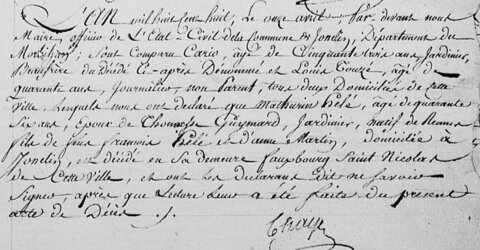 L'An mil huit cent huit, Le onze avril, Par devant nous
Maire, officier de L'Etat-Civil de la Commune de Josselin, Département du
Morbihan, Sont Comparu Cario, âgé de Cinquante trois ans Jardinier,
Beaufrère du Décédé Ci-après Dénommé et Louis Crouzé, âgé de
quarante ans, Journalier, non Parent, tous deux Domiciliés de cette
Ville, Lesquels nous ont déclaré que Mathurin Hélé, âgé de quarante
Six ans, Epoux de Thomasse Guymard Jardinier, natif de
fils de feus François hélé et d'anne Martin, domiciliée à
Josselin, est décédé en Sa demeure fauxbourg Saint Nicolas
de Cette Ville, et ont les déclarans dit ne Savoir
Signer après que Lecture Leur a été faite du présent
acte de Décès ./.